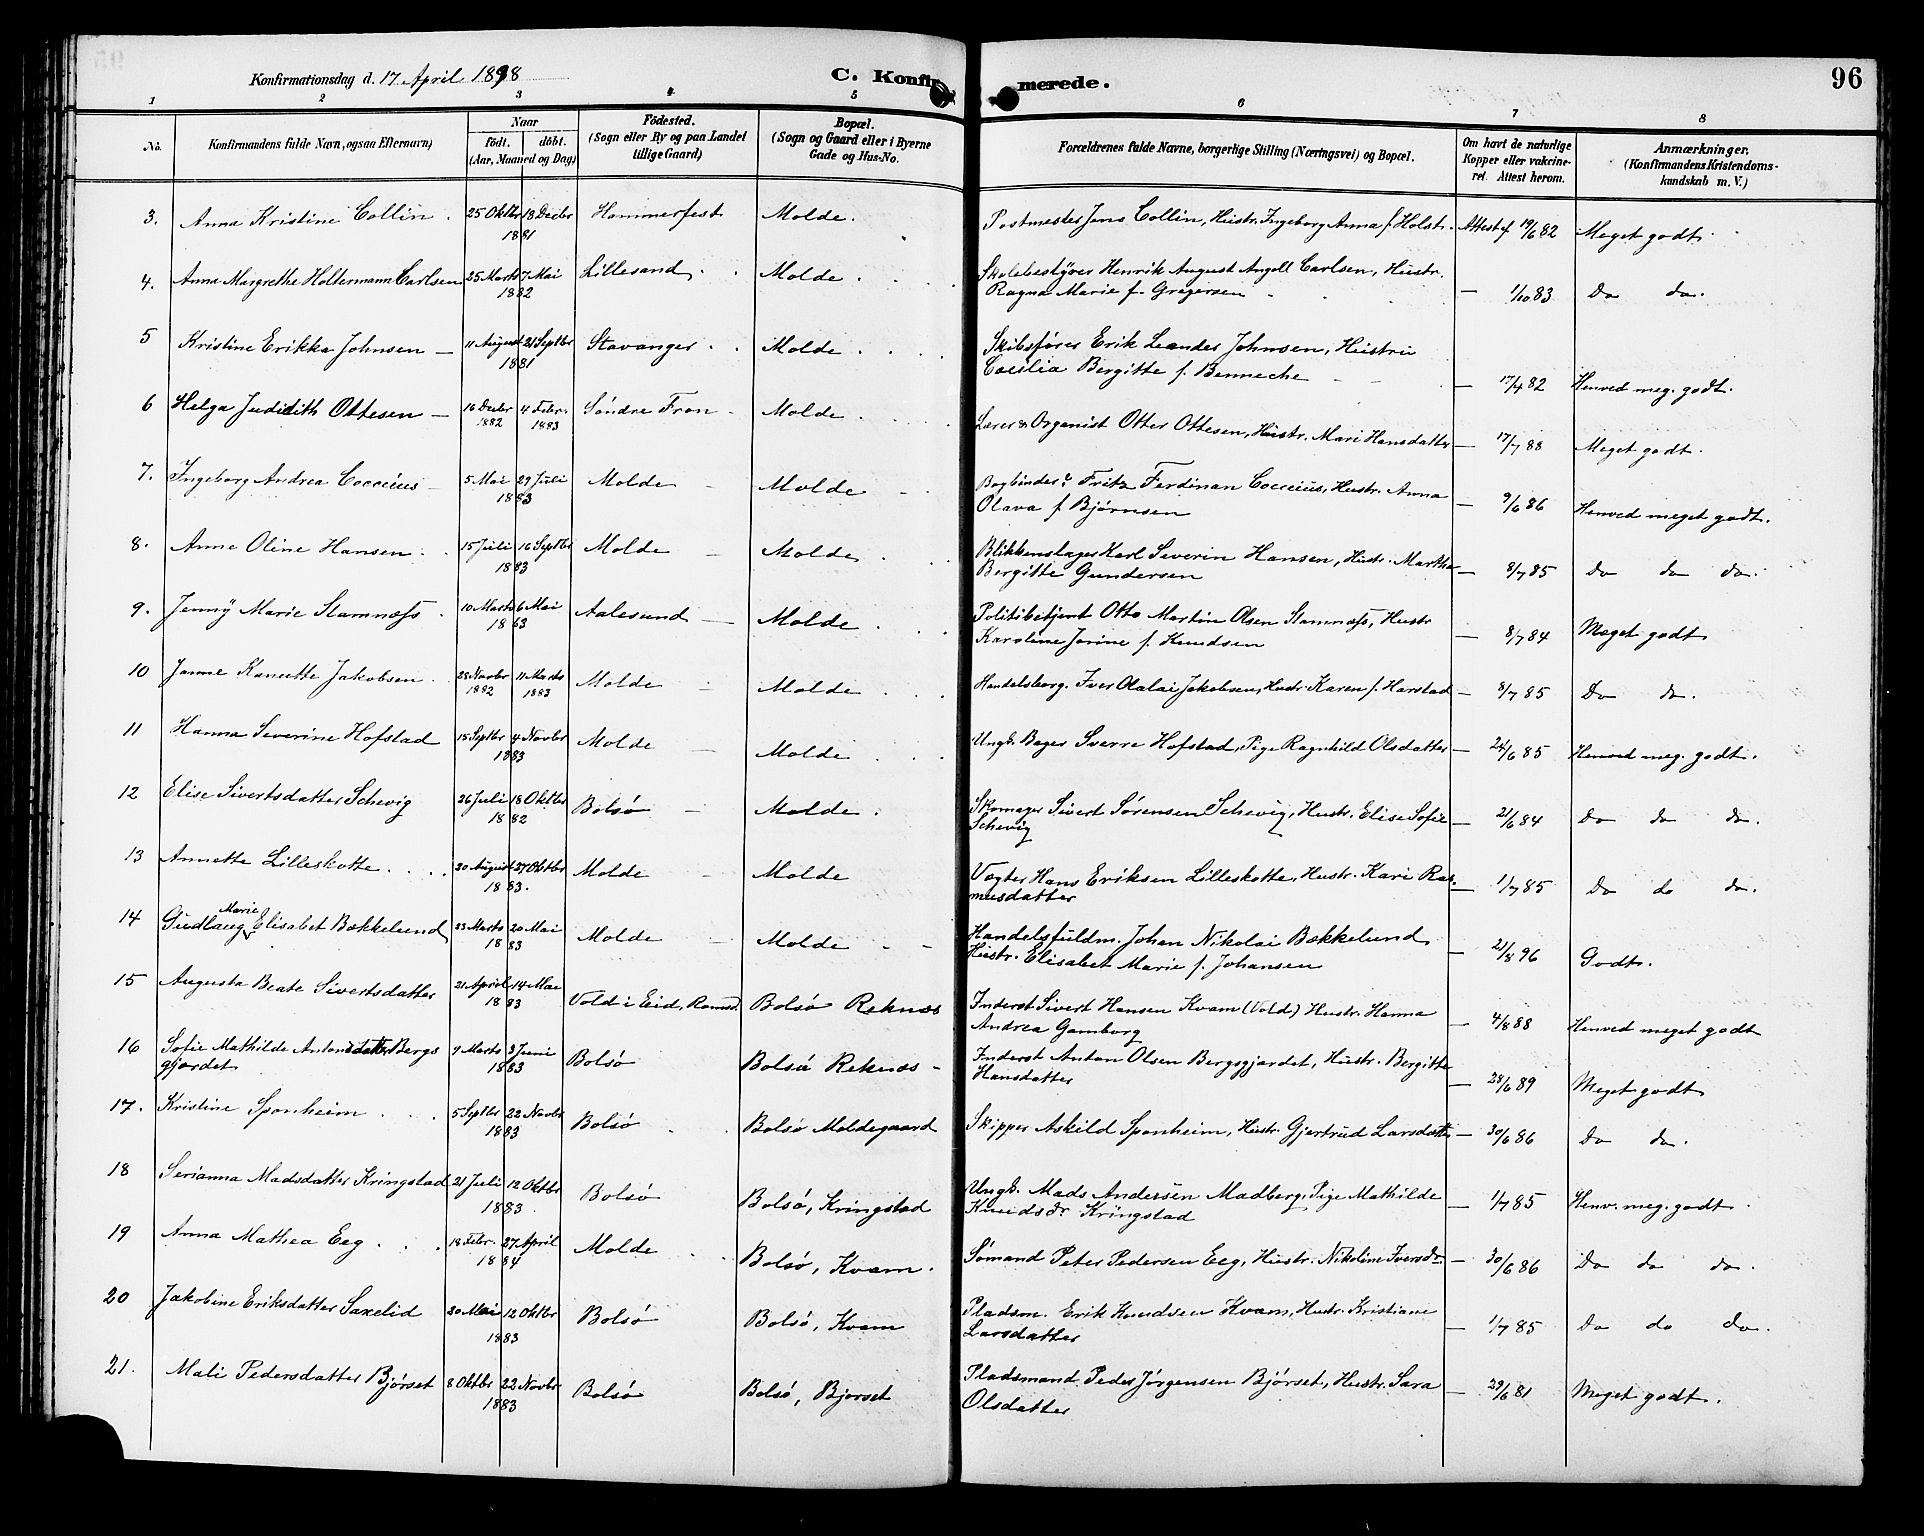 Konfirmationsdag d. 17 April 1898
C. Konfir
merede.
96
1 2 3 4 5 6 7 8
No.
Konfirmandens fulde Navn, ogsaa Efternavn)
Naar
födt. döbt.
(Aar, Maaned og Dag)
Födested.
(Sogn eller By og paa Landet
tillige Gaard)
Bopæl.
(Sogn og Gaard eller i Byerne
Gade og Hus-No.
Forældrenes fulde Navne, borgerlige Stilling (Næringsvei) og Bopæl.
Om havt de naturlige
Kopper eller vakcine-
ret. Attest herom.
Anmærkninger.
(Konfirmandens Kristendoms-
kundskab m. V.)
3. Anna Kristine Collin. 25 Oktbr 18 Decbr 1881 Hammerfest Molde. Postmester Jens Collin, Hustr. Ingeborg Anna f. Holst. Attest af 19/6 82 Meget godt.
4. Anna Margrethe Holtermann Carlsen 25 Marts 7 Mai 1882 Lillesand Molde. Skolebestyrer Henrik August Angell Carlsen, Hustr.
Ragna Marie f. Gregersen — 1/10 83 Do do.
5 Kristine Erikka Johnsen — 11 August 21 Septbr 1881 Stavanger Molde. Skibsfører Erik Leander Johnsen, Hustru
Cecilia Bergitte f. Benneche — 17/4 82 Henved meg. godt.
6 Helga Judidith Ottesen — 16 Decbr 1882 4 Febr. 1883 Söndre Fron Molde. Lærer & Organist Otter Ottesen, Hustr. Mari Hansdatter — 17/7 88 Meget godt.
7. Ingeborg Andrea Cocceius 5 Mai 29 Juli 1883 Molde Molde Bogbinder Fritz Ferdinan Cocceius, Hustr. Anna
Olava f. Bjørnsen — 9/6 86 Henved meget godt.
8. Anne Oline Hansen. 15 Juli 16 Septbr 1883 Molde Molde. Blikkenslager Karl Severin Hansen, Hustr. Martha
Bergitte Gundersen — 8/7 85 Do do do.
9. Jenny Marie Stamnæss. 10 Marts 6 Mai 1883 Aalesund Molde. Politibetjent Otto Martin Olsen Stamnæss, Hustr
Karoline Jorine f. Knudsen — 8/7 84 Meget godt
10 Janne Kanutte Jakobsen. 28 Novbr 1882 11 Marts 1883 Molde Molde. Handelsborg. Iver Olalai Jakobsen, Hustr. Karen f. Harstad — 8/7 85 Do do.
11 Hanna Severine Hofstad 15 Septbr 4 Novbr 1883 Molde Molde. Ungk. Bager Sverre Hofstad, Pige Ragnhild Olsdatter — 24/6 85 Henved meg. godt.
12 Elise Sivertsdatter Schevig 26 Juli 18 Oktbr 1882 Bolsø Molde. Skomager Sivert Sørensen Schevig, Hustr. Elise Sofie
Schevig — 21/6 84 Do do do.
13 Annette Lilleskotte. 30 August 27 Oktbr 1883. Molde Molde Vægter Hans Eriksen Lilleskotte, Hustr. Kari Ras-
musdatter — 1/7 85 Do do do.
14 Gudlaug Marie Elisabet Bækkelund 23 Marts 20 Mai 1883 Molde Molde Handelsfuldm. Johan Nikolai Bækkelund
Hustr. Elisabet Marie f. Johansen — 21/8 96 Godt.
15 Augusta Beate Sivertsdatter 21 April 14 Mai 1883 Vold i Eid, Romsd. Bolsø Reknes Inderst Sivert Hansen Kvam (Vold) Hustr. Hanna
Andrea Gamborg — 4/8 88 Henved meget godt
16 Sofie Mathilde Antonsdatter Bergs
gjærdet 9 Marts 3 Juni 1883 Bolsø Bolsø Reknes Inderst Anton Olsen Bergsgjærdet, Hustr. Bergitte
Hansdatter — 28/6 89 Meget godt
17. Kristine Sponheim 5 Septbr 22 Novbr 1883 Bolsø Bolsø Moldegaard Skipper Askild Sponheim, Hustr. Gjertrud Larsdatter — 30/6 86 Do do.
18 Serianna Madsdatter Kringstad 21 Juli 12 Oktbr 1883. Bolsø Bolsø, Kringstad Ungk. Mads Andersen Madberg, Pige Mathilde
Knudsdr Kringstad — 1/7 85 Henv. meg. godt
19 Anna Mathea Eeg. 18 Febr. 27 April 1884 Molde Bolsø, Kvam. Sømand Peter Pedersen Eeg, Hustr. Nikoline Iversdr — 30/6 86 Do do do.
20 Jakobine Eriksdatter Saxelid 30 Mai 12 Oktbr 1883 Bolsø Bolsø, Kvam Pladsm. Erik Knudsen Kvam, Hustr. Kristiane
Larsdatter — 1/7 85 Do do do.
21. Mali Pedersdatter Bjørset 8 Oktbr 22 Novbr 1883 Bolsø Bolsø, Bjørset Pladsmand Peder Jørgensen Bjørset, Hustr. Sara
Olsdatter — 29/6 81 Meget godt.